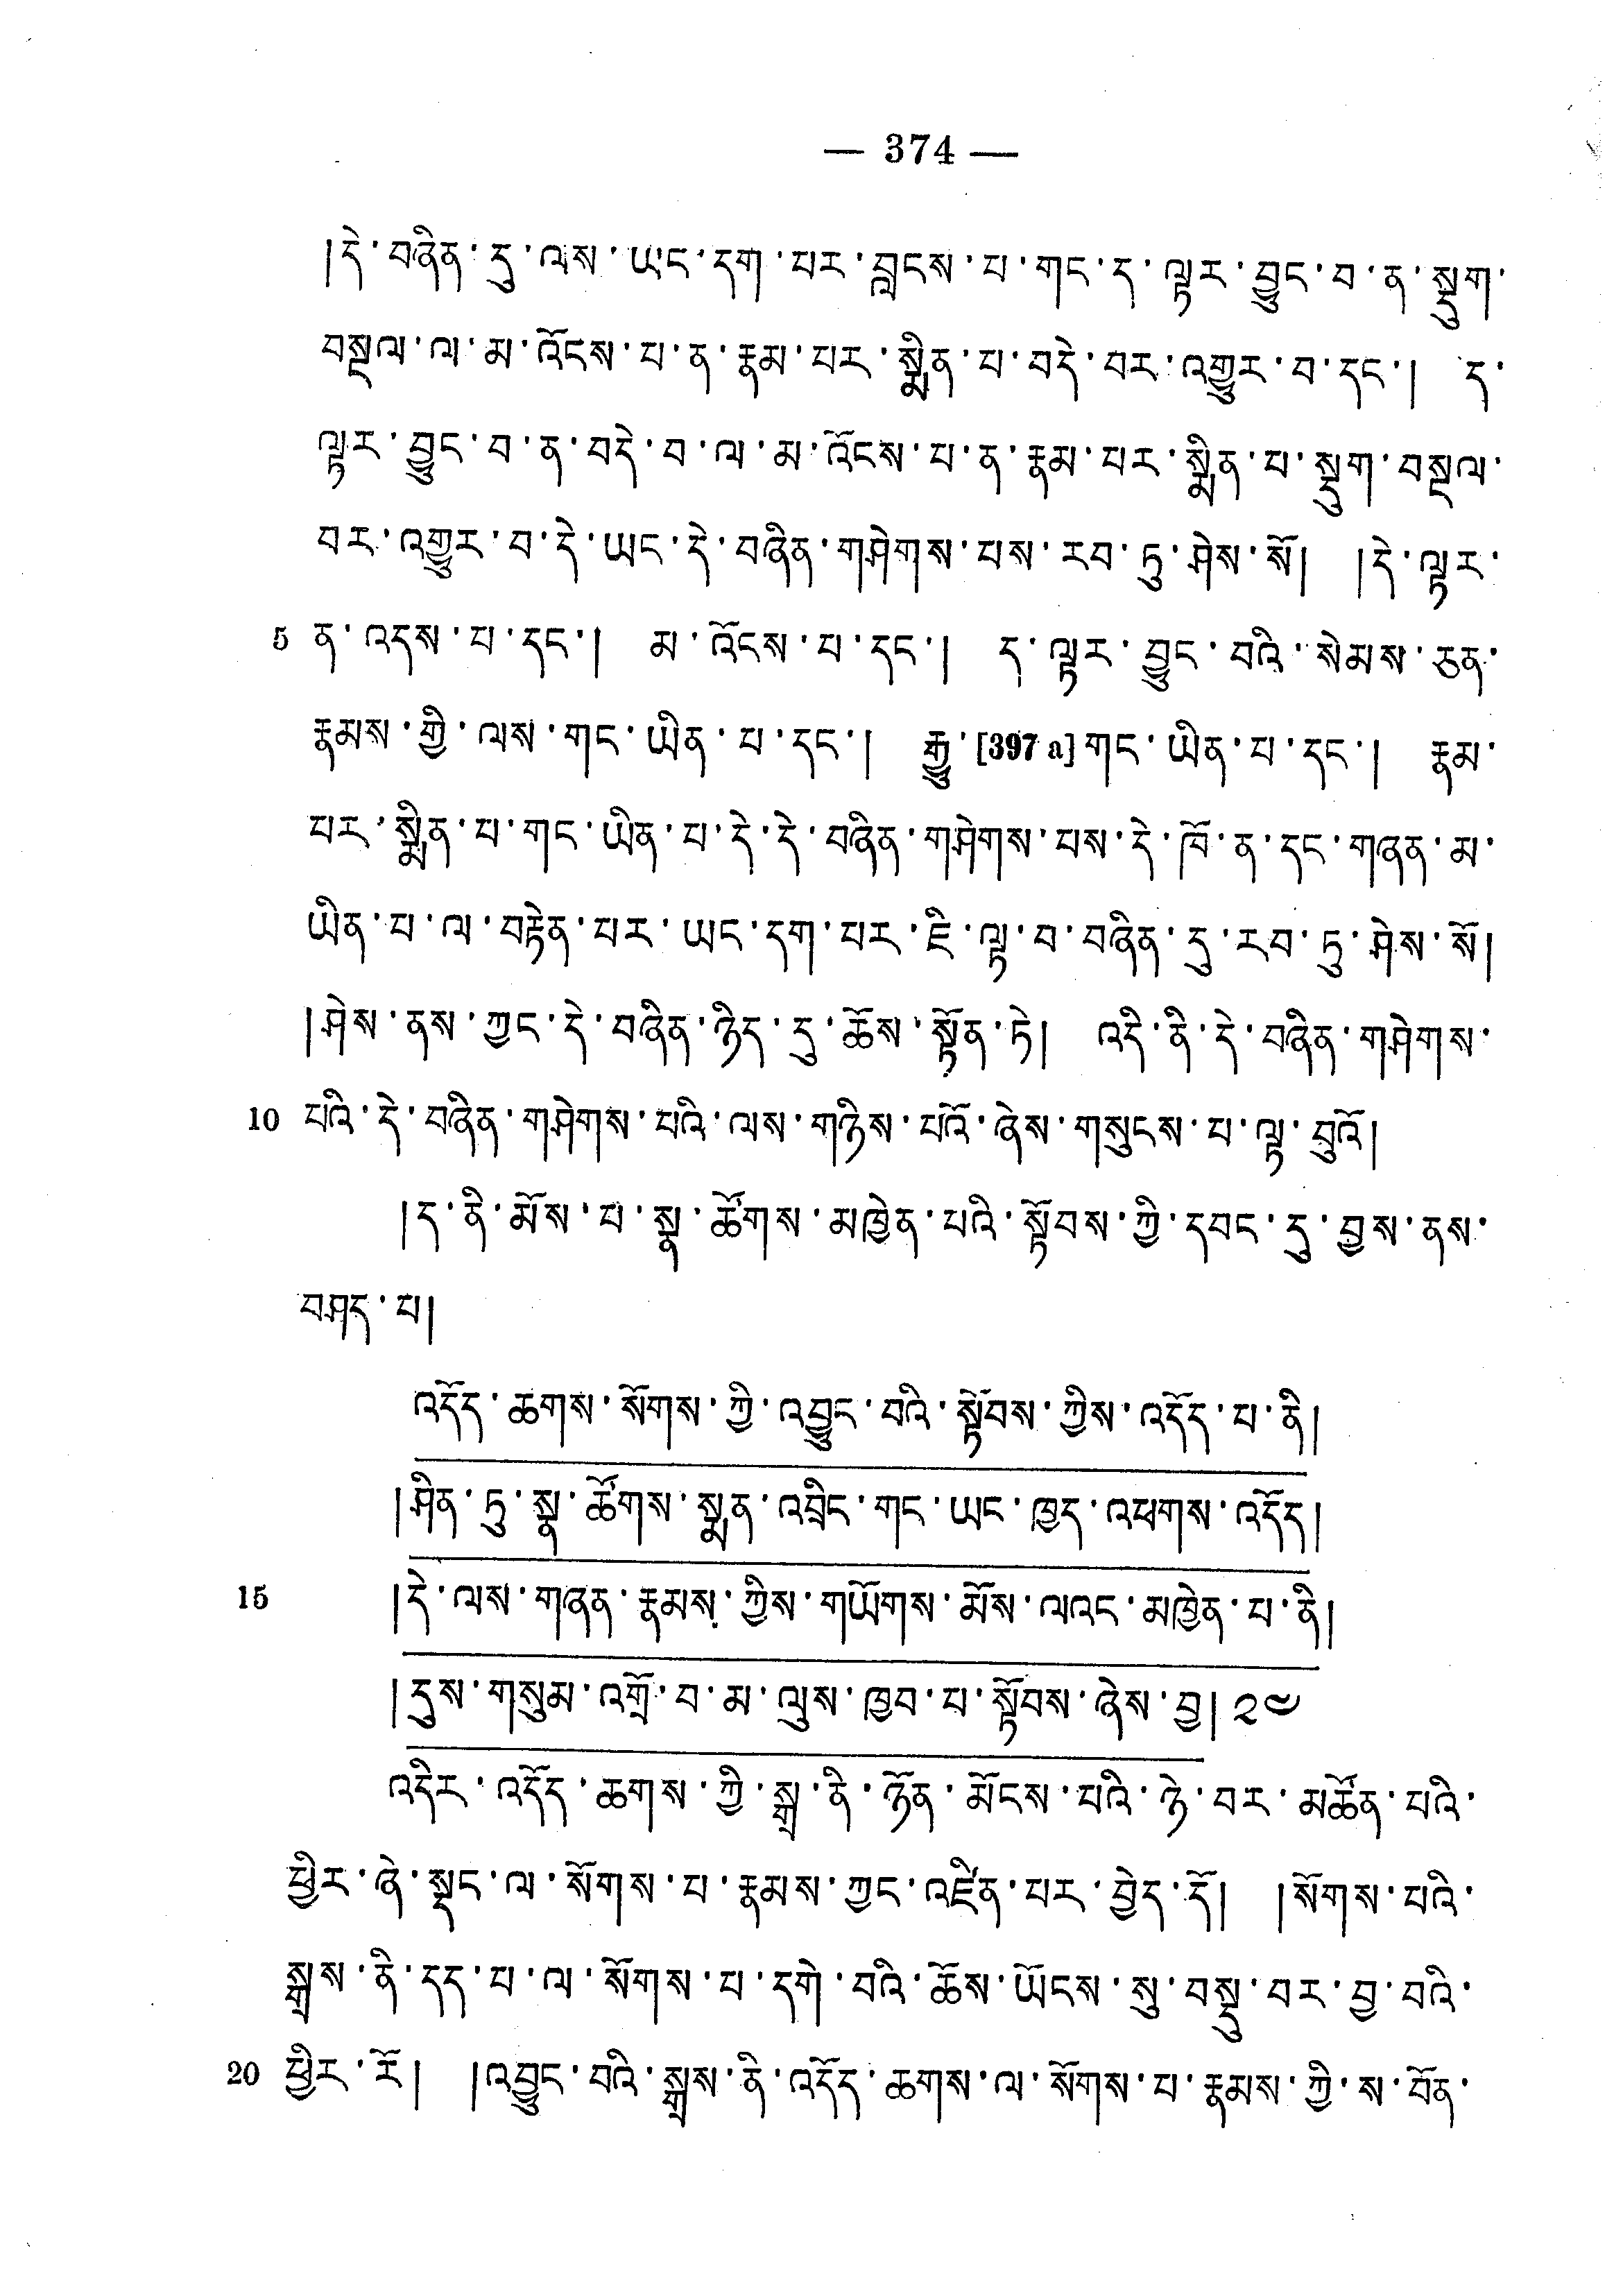 — 374 —
།དེ་བཞིན་དུ་ལས་ཡང་དག་པར་བླངས་པ་གང་ད་ལྟར་བྱུང་བ་ན་སྡུག་
བསྔལ་ལ་མ་འོངས་པ་ན་རྣམ་པར་སྨིན་པ་བདེ་བར་འགྱུར་བ་དང་། ད་
ལྟར་བྱུང་བ་ན་བདེ་བ་ལ་མ་འོངས་པ་ན་རྣམ་པར་སྨིན་པ་སྡུག་བསྔལ་
བར་འགྱུར་བ་དེ་ཡང་དེ་བཞིན་གཤེགས་པས་རབ་ཏུ་ཤེས་སོ། །དེ་ལྟར་
5 ན་འདས་པ་དང་། མ་འོངས་པ་དང་། ད་ལྟར་བྱུང་བའི་སེམས་ཅན་
རྣམས་ཀྱི་ལས་གང་ཡིན་པ་དང་། རྒྱུ་[397 a]གང་ཡིན་པ་དང་། རྣམ་
པར་སྨིན་པ་གང་ཡིན་པ་དེ་དེ་བཞིན་གཤེགས་པས་དེ་ཁོ་ན་དང་གཞན་མ་
ཡིན་པ་ལ་བརྟེན་པར་ཡང་དག་པར་ཇི་ལྟ་བ་བཞིན་དུ་རབ་ཏུ་ཤེས་སོ།
།ཤེས་ནས་ཀྱང་དེ་བཞིན་ཉིད་དུ་ཆོས་སྟོན་ཏེ། འདི་ནི་དེ་བཞིན་གཤེགས་
10 པའི་དེ་བཞིན་གཤེགས་པའི་ལས་གཉིས་པའོ་ཞེས་གསུངས་པ་ལྟ་བུའོ།
།ད་ནི་མོས་པ་སྣ་ཚོགས་མཁྱེན་པའི་སྟོབས་ཀྱི་དབང་དུ་བྱས་ནས་
བཤད་པ།
འདོད་ཆགས་སོགས་ཀྱི་འབྱུང་བའི་སྟོབས་ཀྱིས་འདོད་པ་ནི།
།ཤིན་ཏུ་སྣ་ཚོགས་སྨན་འབྲིང་གང་ཡང་ཁྱད་འཕགས་འདོད།
15 །དེ་ལས་གཞན་རྣམས་ཀྱིས་གཡོགས་མོས་ལའང་མཁྱེན་པ་ནི།
།དུས་གསུམ་འགྲོ་བ་མ་ལུས་ཁྱབ་པ་སྟོབས་ཞེས་བྱ། ༢༤
འདིར་འདོད་ཆགས་ཀྱི་སྒྲ་ནི་ཉོན་མོངས་པའི་ཉེ་བར་མཚོན་པའི་
ཕྱིར་ཞེ་སྡང་ལ་སོགས་པ་རྣམས་ཀྱང་འཛིན་པར་བྱེད་དོ། །སོགས་པའི་
སྒྲས་ནི་དད་པ་ལ་སོགས་པ་དགེ་བའི་ཆོས་ཡོངས་སུ་བསྡུ་བར་བྱ་བའི་
20 ཕྱིར་རོ། །འབྱུང་བའི་སྒྲས་ནི་འདོད་ཆགས་ལ་སོགས་པ་རྣམས་ཀྱི་ས་བོན་